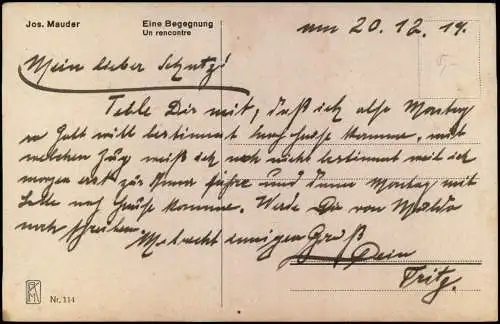 Jos. Mauder
Eine Begegnung
Un rencontre
am 20.12.19.
Mein lieber Schatz!
Teile Dir mit, daß ich also Montag
will bestimmt nach Hause komme, mit
welchen Zug weiß ich noch nicht bestimmt weil ich
morgen erst zur fahre und dann Montag mit
nach Hause komme. Werde Dir von
noch schreiben.
Mit recht innigen Gruß
Dein
Fritz.
Nr. 114